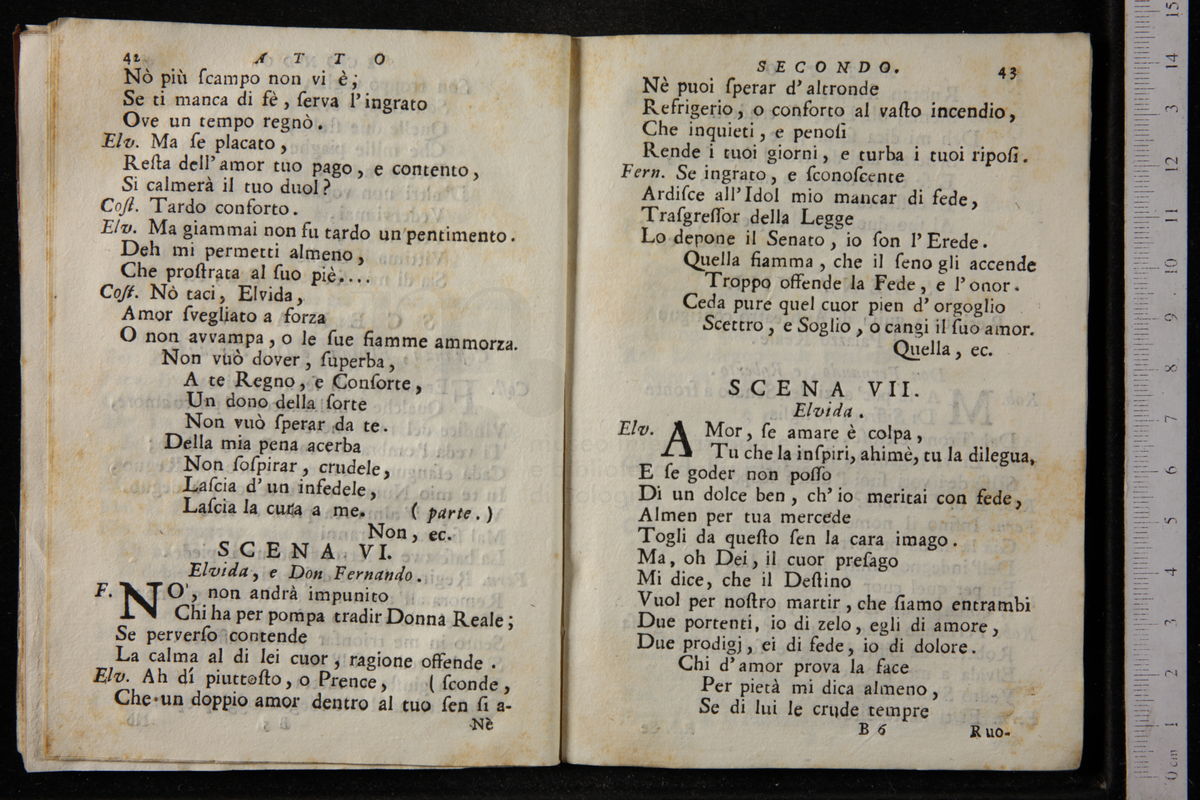 42 ATTO
Nò più ſcampo non vi è;
Se ti manca di fè, ſerva l'ingrato
Ove un tempo regnò.
Elv. Ma ſe placato,
Reſta dell'amor tuo pago, e contento,
Si calmerà il tuo duol?
Coſt. Tardo conforto.
Elv. Ma giammai non fu tardo un pentimento.
Deh mi permetti almeno,
Che proſtrata al ſuo piè....
Coſt. Nò taci, Elvida,
Amor ſvegliato a forza
O non avvampa, o le ſue fiamme ammorza.
Non vuò dover, ſuperba,
A te Regno, e Conſorte,
Un dono della ſorte
Non vuò ſperar da te.
Della mia pena acerba
Non ſoſpirar, crudele,
Laſcia d'un infedele,
Laſcia la cura a me. (parte.)
Non, ec.
SCENA VI.
Elvida, e Don Fernando.
F. NO', non andrà impunito
Chi ha per pompa tradir Donna Reale;
Se perverſo contende
La calma al di lei cuor, ragione offende.
Elv. Ah dí piuttoſto, o Prence, (ſconde,
Che un doppio amor dentro al tuo ſen ſi a-
Nè
SECONDO. 43
Nè puoi ſperar d'altronde
Refrigerio, o conforto al vaſto incendio,
Che inquieti, e penoſi
Rende i tuoi giorni, e turba i tuoi ripoſi.
Fern. Se ingrato, e ſconoſcente
Ardiſce all'Idol mio mancar di fede,
Traſgreſſor della Legge
Lo depone il Senato, io ſon l'Erede.
Quella fiamma, che il ſeno gli accende
Troppo offende la Fede, e l'onor.
Ceda pure quel cuor pien d'orgoglio
Scettro, e Soglio, o cangi il ſuo amor.
Quella, ec.
SCENA VII.
Elvida.
Elv. AMor, ſe amare è colpa,
Tu che la inſpiri, ahimè, tu la dilegua,
E ſe goder non poſſo
Di un dolce ben, ch'io meritai con fede,
Almen per tua mercede
Togli da queſto ſen la cara imago.
Ma, oh Dei, il cuor preſago
Mi dice, che il Deſtino
Vuol per noſtro martir, che ſiamo entrambi
Due portenti, io di zelo, egli di amore,
Due prodigj, ei di fede, io di dolore.
Chi d'amor prova la face
Per pietà mi dica almeno,
Se di lui le crude tempre
B 6 Ruo-